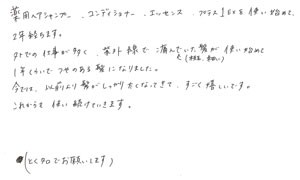 薬用ヘアシャンプー、コンディショナー、エッセンス、プラス1EXを使い始めて、
2年経ちます。
外での仕事が多く、紫外線で痛んでいた髪が使い始めて
1年くらいでつやのある髪になりました。
今では、以前より髪がしっかりしなくてきて、すごく嬉しいです。
これからも使い続けていきます。
(とく名でお願いします)